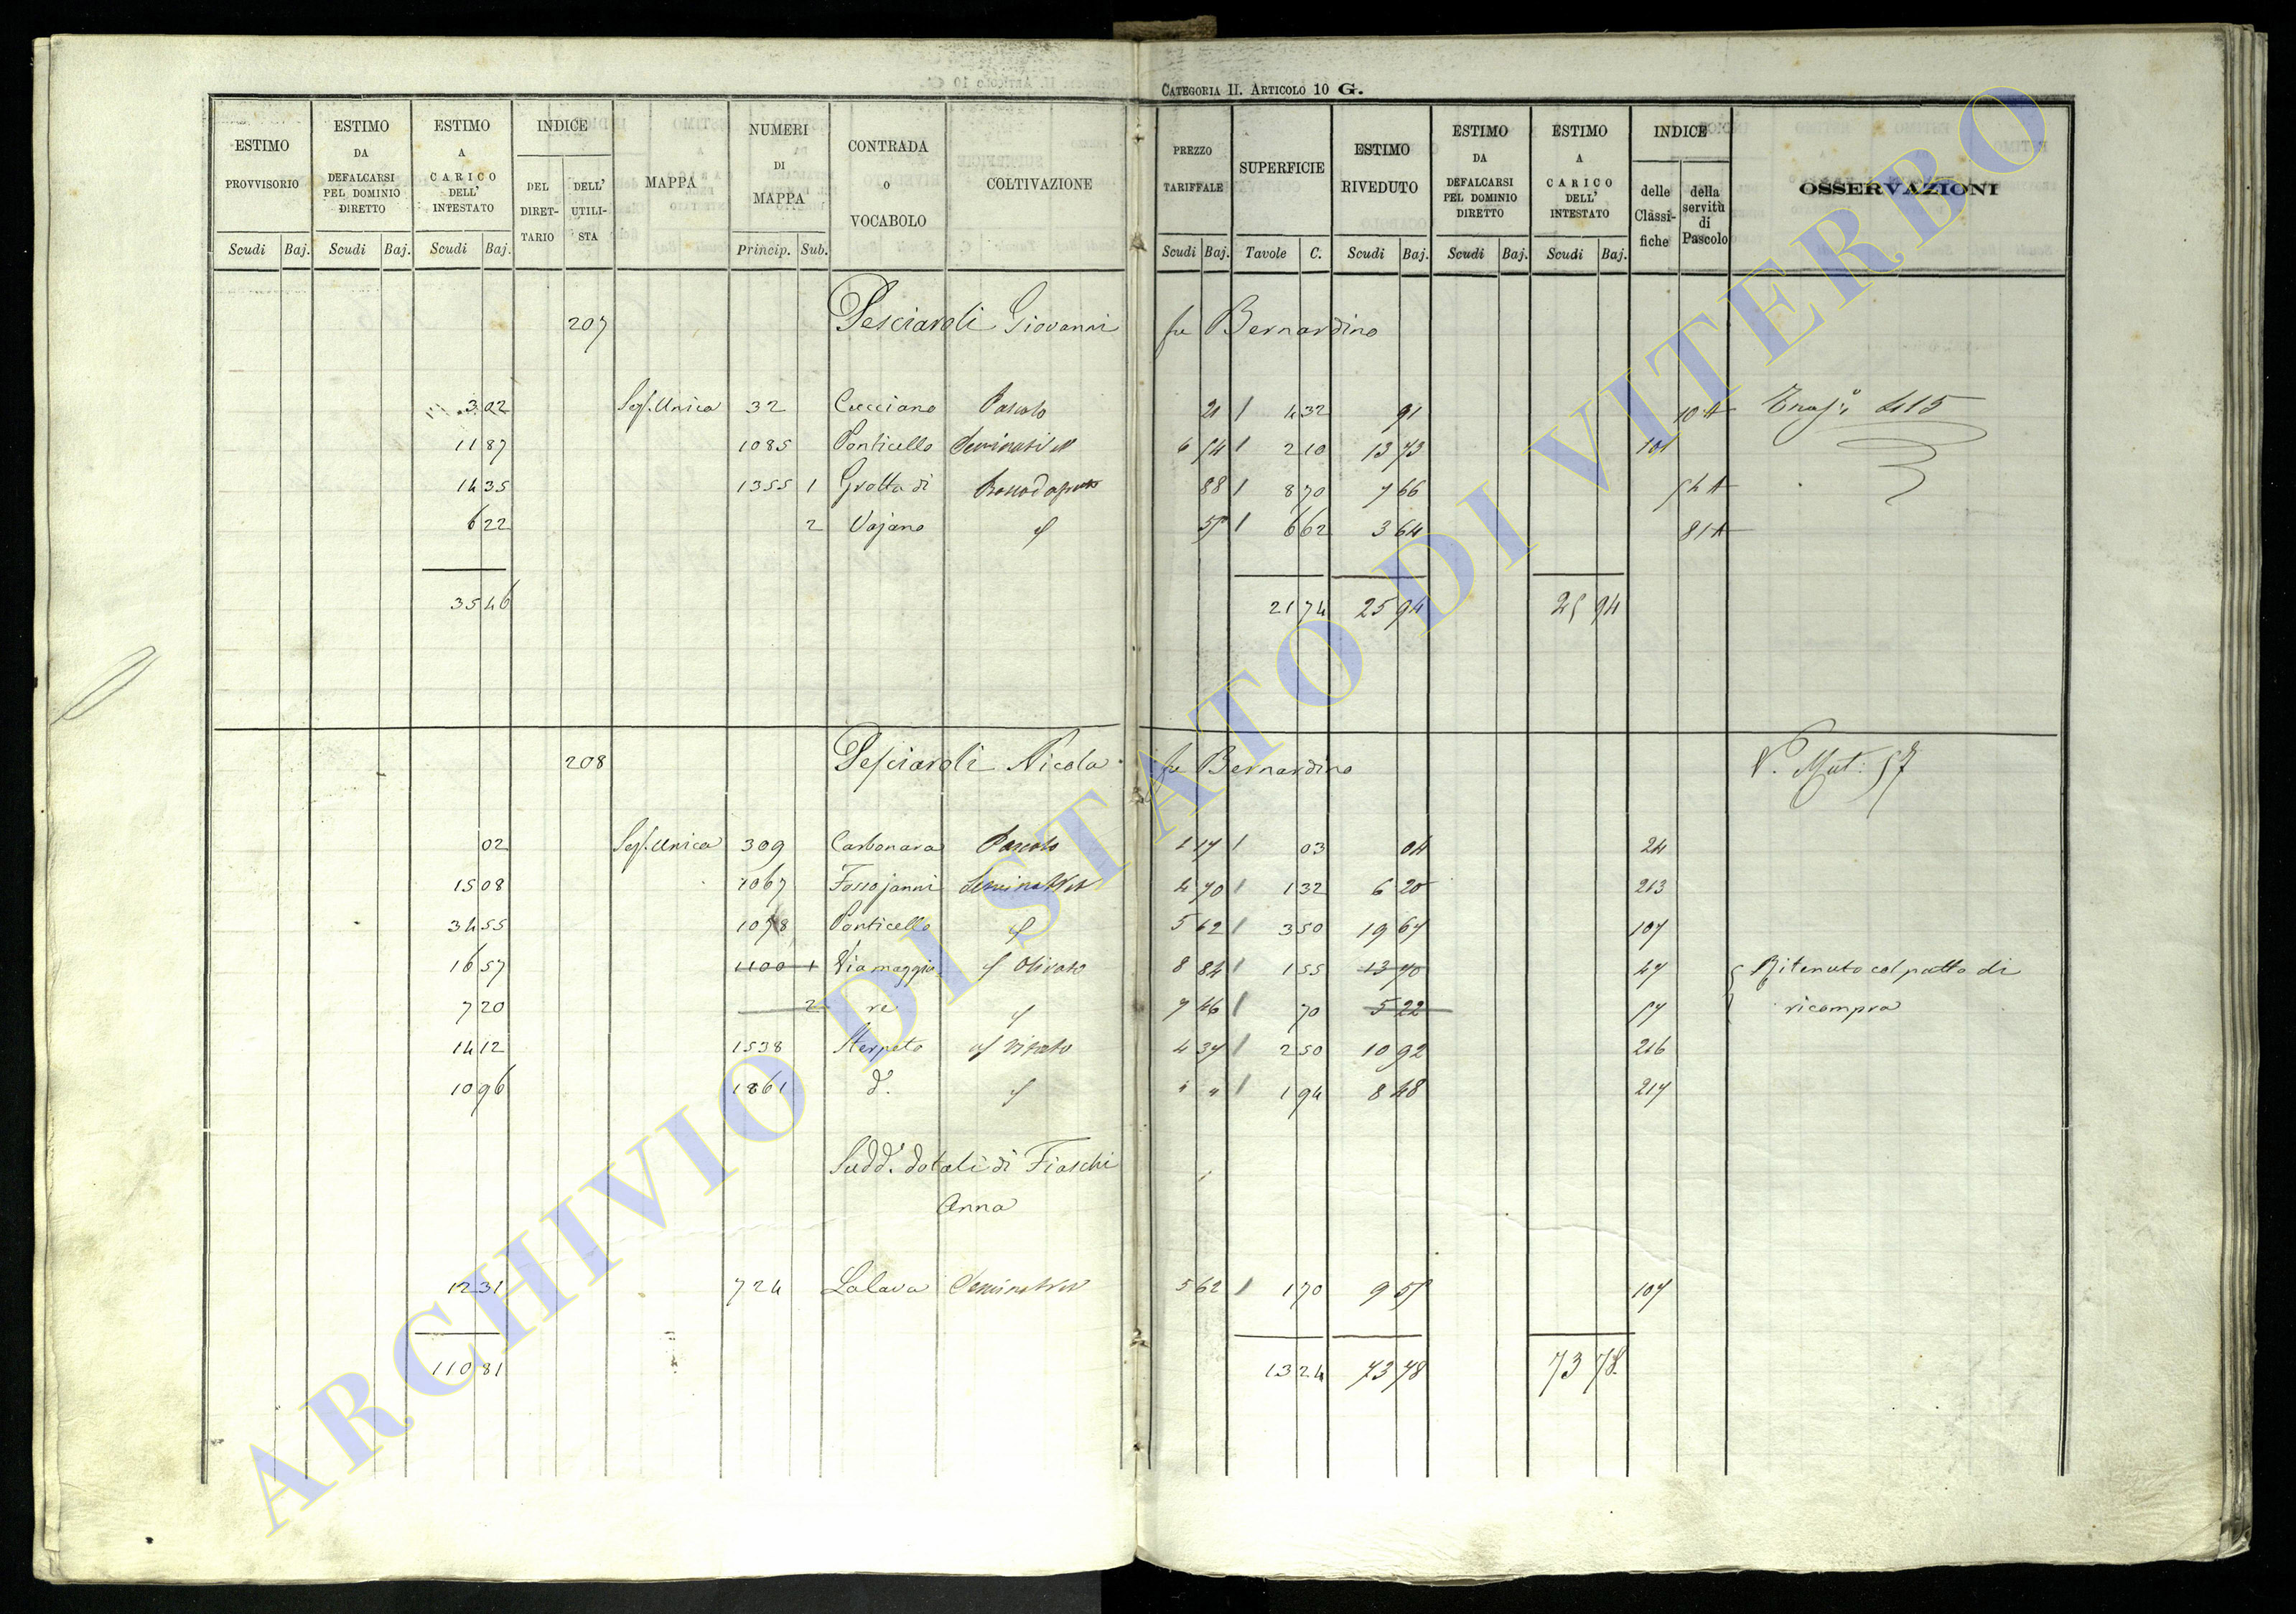 CATEGORIA II. ARTICOLO 10 G.
ESTIMO PROVVISORIO
ESTIMO DA DEFALCARSI PEL DOMINIO DIRETTO
ESTIMO A CARICO DELL' INTESTATO
INDICE
DEL DIRET-TARIO
DELL' UTILI-STA
MAPPA
NUMERI DI MAPPA
CONTRADA o VOCABOLO
COLTIVAZIONE
PREZZO TARIFFALE
SUPERFICIE
ESTIMO RIVEDUTO
ESTIMO DA DEFALCARSI PEL DOMINIO DIRETTO
ESTIMO A CARICO DELL' INTESTATO
INDICE
delle Classi-fiche
della servitù di Pascolo
OSSERVAZIONI
Scudi Baj. Scudi Baj. Scudi Baj. Princip. Sub. Scudi Baj. Tavole C. Scudi Baj. Scudi Baj. Scudi Baj.
207 Pesciaroli Giovanni fu Bernardino
3 02 Sez. Unica 32 Cucciano Pascolo 21 1 4 32 91 10 A 415
11 87 1085 Ponticello 6 54 1 2 10 13 73 101
14 35 1355 1 Grotta di 88 1 8 70 7 66 54 A
6 22 2 Vajano 55 1 6 62 3 64 81 A
35 46 21 74 25 94 25 94
208 Pesciaroli Nicola fu Bernardino V. Mut: 57
02 Sez. Unica 309 Carbonara Pascolo 1 17 1 03 04 24
15 08 1067 Fossojanni Seminativo 4 70 1 1 32 6 20 213
34 55 1078 Ponticello 5 62 1 3 50 19 67 107
16 57 1100 1 Viamaggio Olivato 8 84 1 1 55 13 70 47 Ritenuto col patto di
7 20 2 re 7 46 1 70 5 22 57 ricompra
14 12 1538 Sterpeto Vitato 4 37 1 2 50 10 92 216
10 96 1861 d.º " " 1 1 94 8 48 217
Sudd.º dotali di Fiaschi
Anna
12 31 724 Lalava Seminativo 5 62 1 1 70 9 55 107
110 81 13 24 73 78 73 78
ARCHIVIO DI STATO DI VITERBO